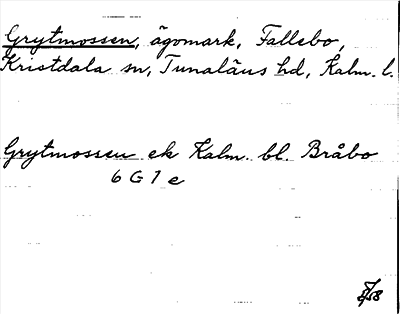 Grytmossen, ägomark, Fallebo,
Kristdala sn, Tunaläns hd, Kalm. l.
Grytmossen ek Kalm. bl. Bråbo
6 G 1 e